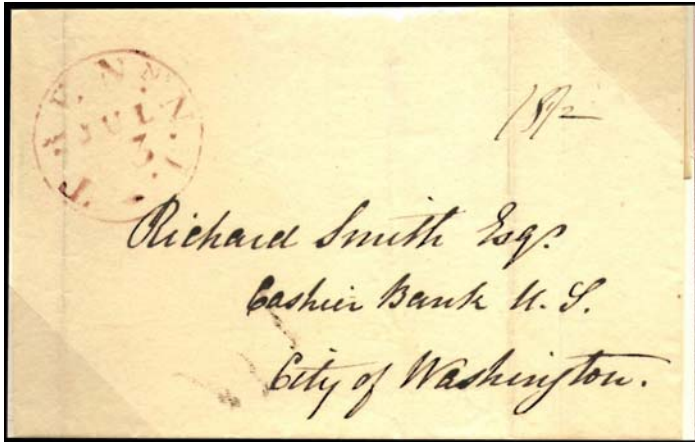 JUL
3
18½
Richard Smith Esqr.
Cashier Bank U. S.
City of Washington.